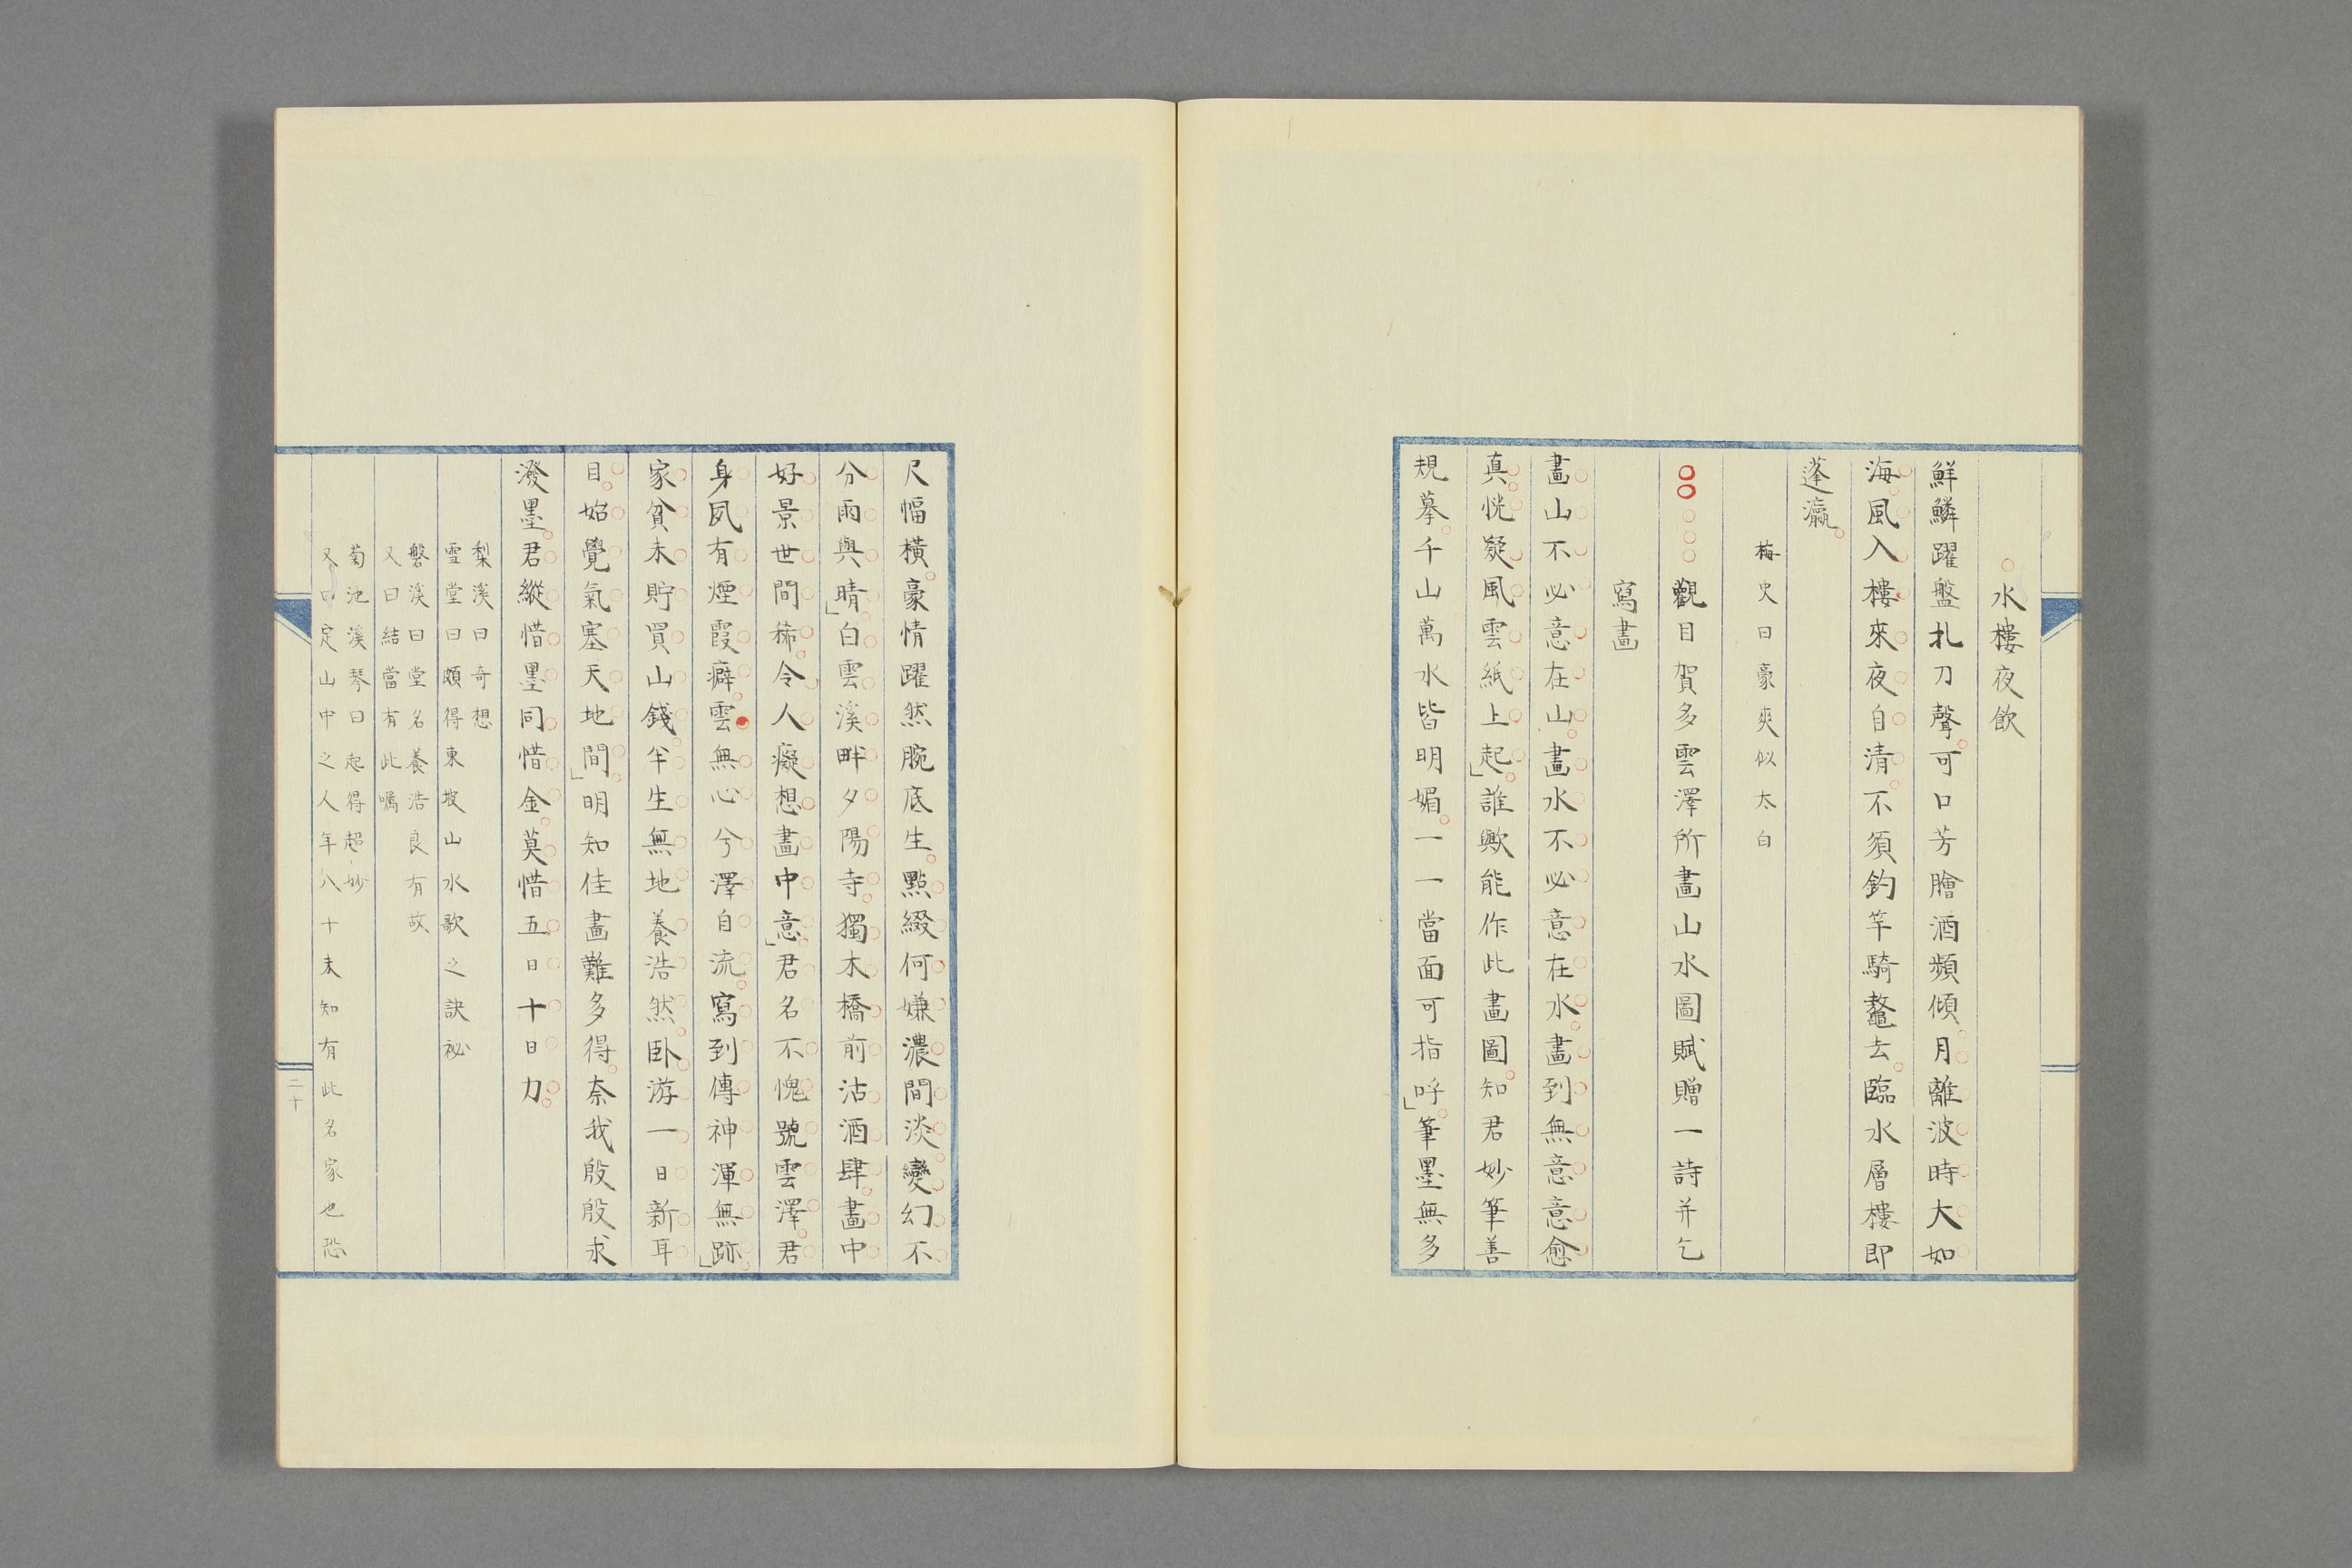 水樓夜飲
鮮鱗躍盤扎刀聲可口芳膾酒頻傾月離波時大如
海風入樓來夜自清不須釣竿騎鼇去臨水層樓即
蓬瀛
梅史曰豪爽似太白
觀日賀多雲澤所畫山水圖賦贈一詩并乞
寫畫
畫山不必意在山畫水不必意在水畫到無意意愈
真恍疑風雲紙上起誰歟能作此畫圖知君妙筆善
規摹千山萬水皆明媚一一當面可指呼筆墨無多
尺幅橫豪情躍然腕底生點綴何嫌濃間淡變幻不
分雨與晴白雲溪畔夕陽寺獨木橋前沽酒肆畫中
好景世間稀令人癡想畫中意君名不愧號雲澤君
身夙有煙霞癖雲無心兮澤自流寫到傳神渾無跡
家貧未貯買山錢半生無地養浩然臥游一日新耳
目始覺氣塞天地間明知佳畫難多得奈我殷殷求
潑墨君縱惜墨同惜金莫惜五日十日力
梨溪曰奇想
雪堂曰頗得東坡山水歌之訣祕
磐溪曰堂名養浩良有故
又曰結當有此囑
菊池溪琴曰起得超妙
又曰定山中之人年八十未知有此名家也恐
二十